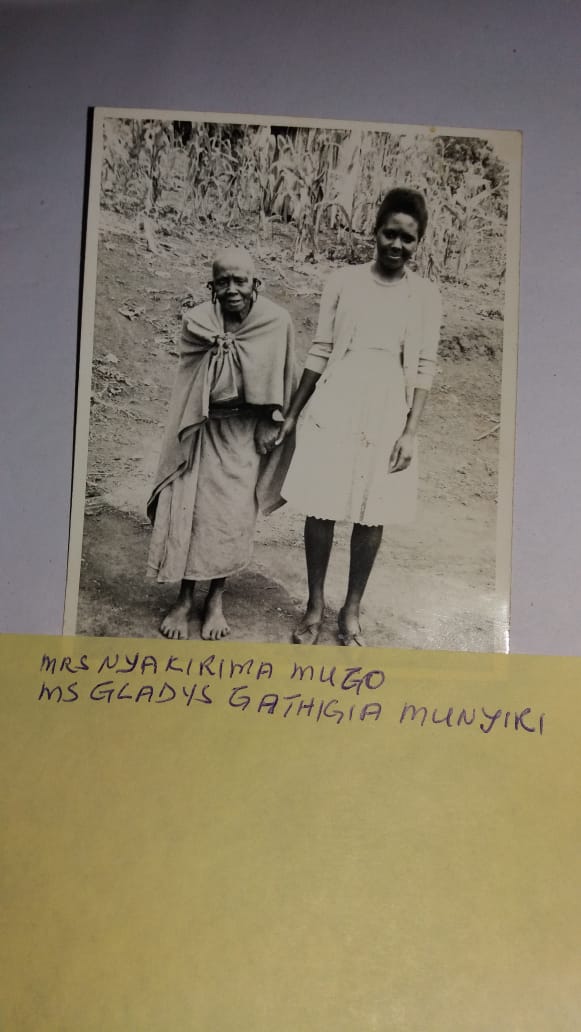 MRS NYAKIRIMA MUGO
MS GLADYS GATHIGIA MUNYIRI